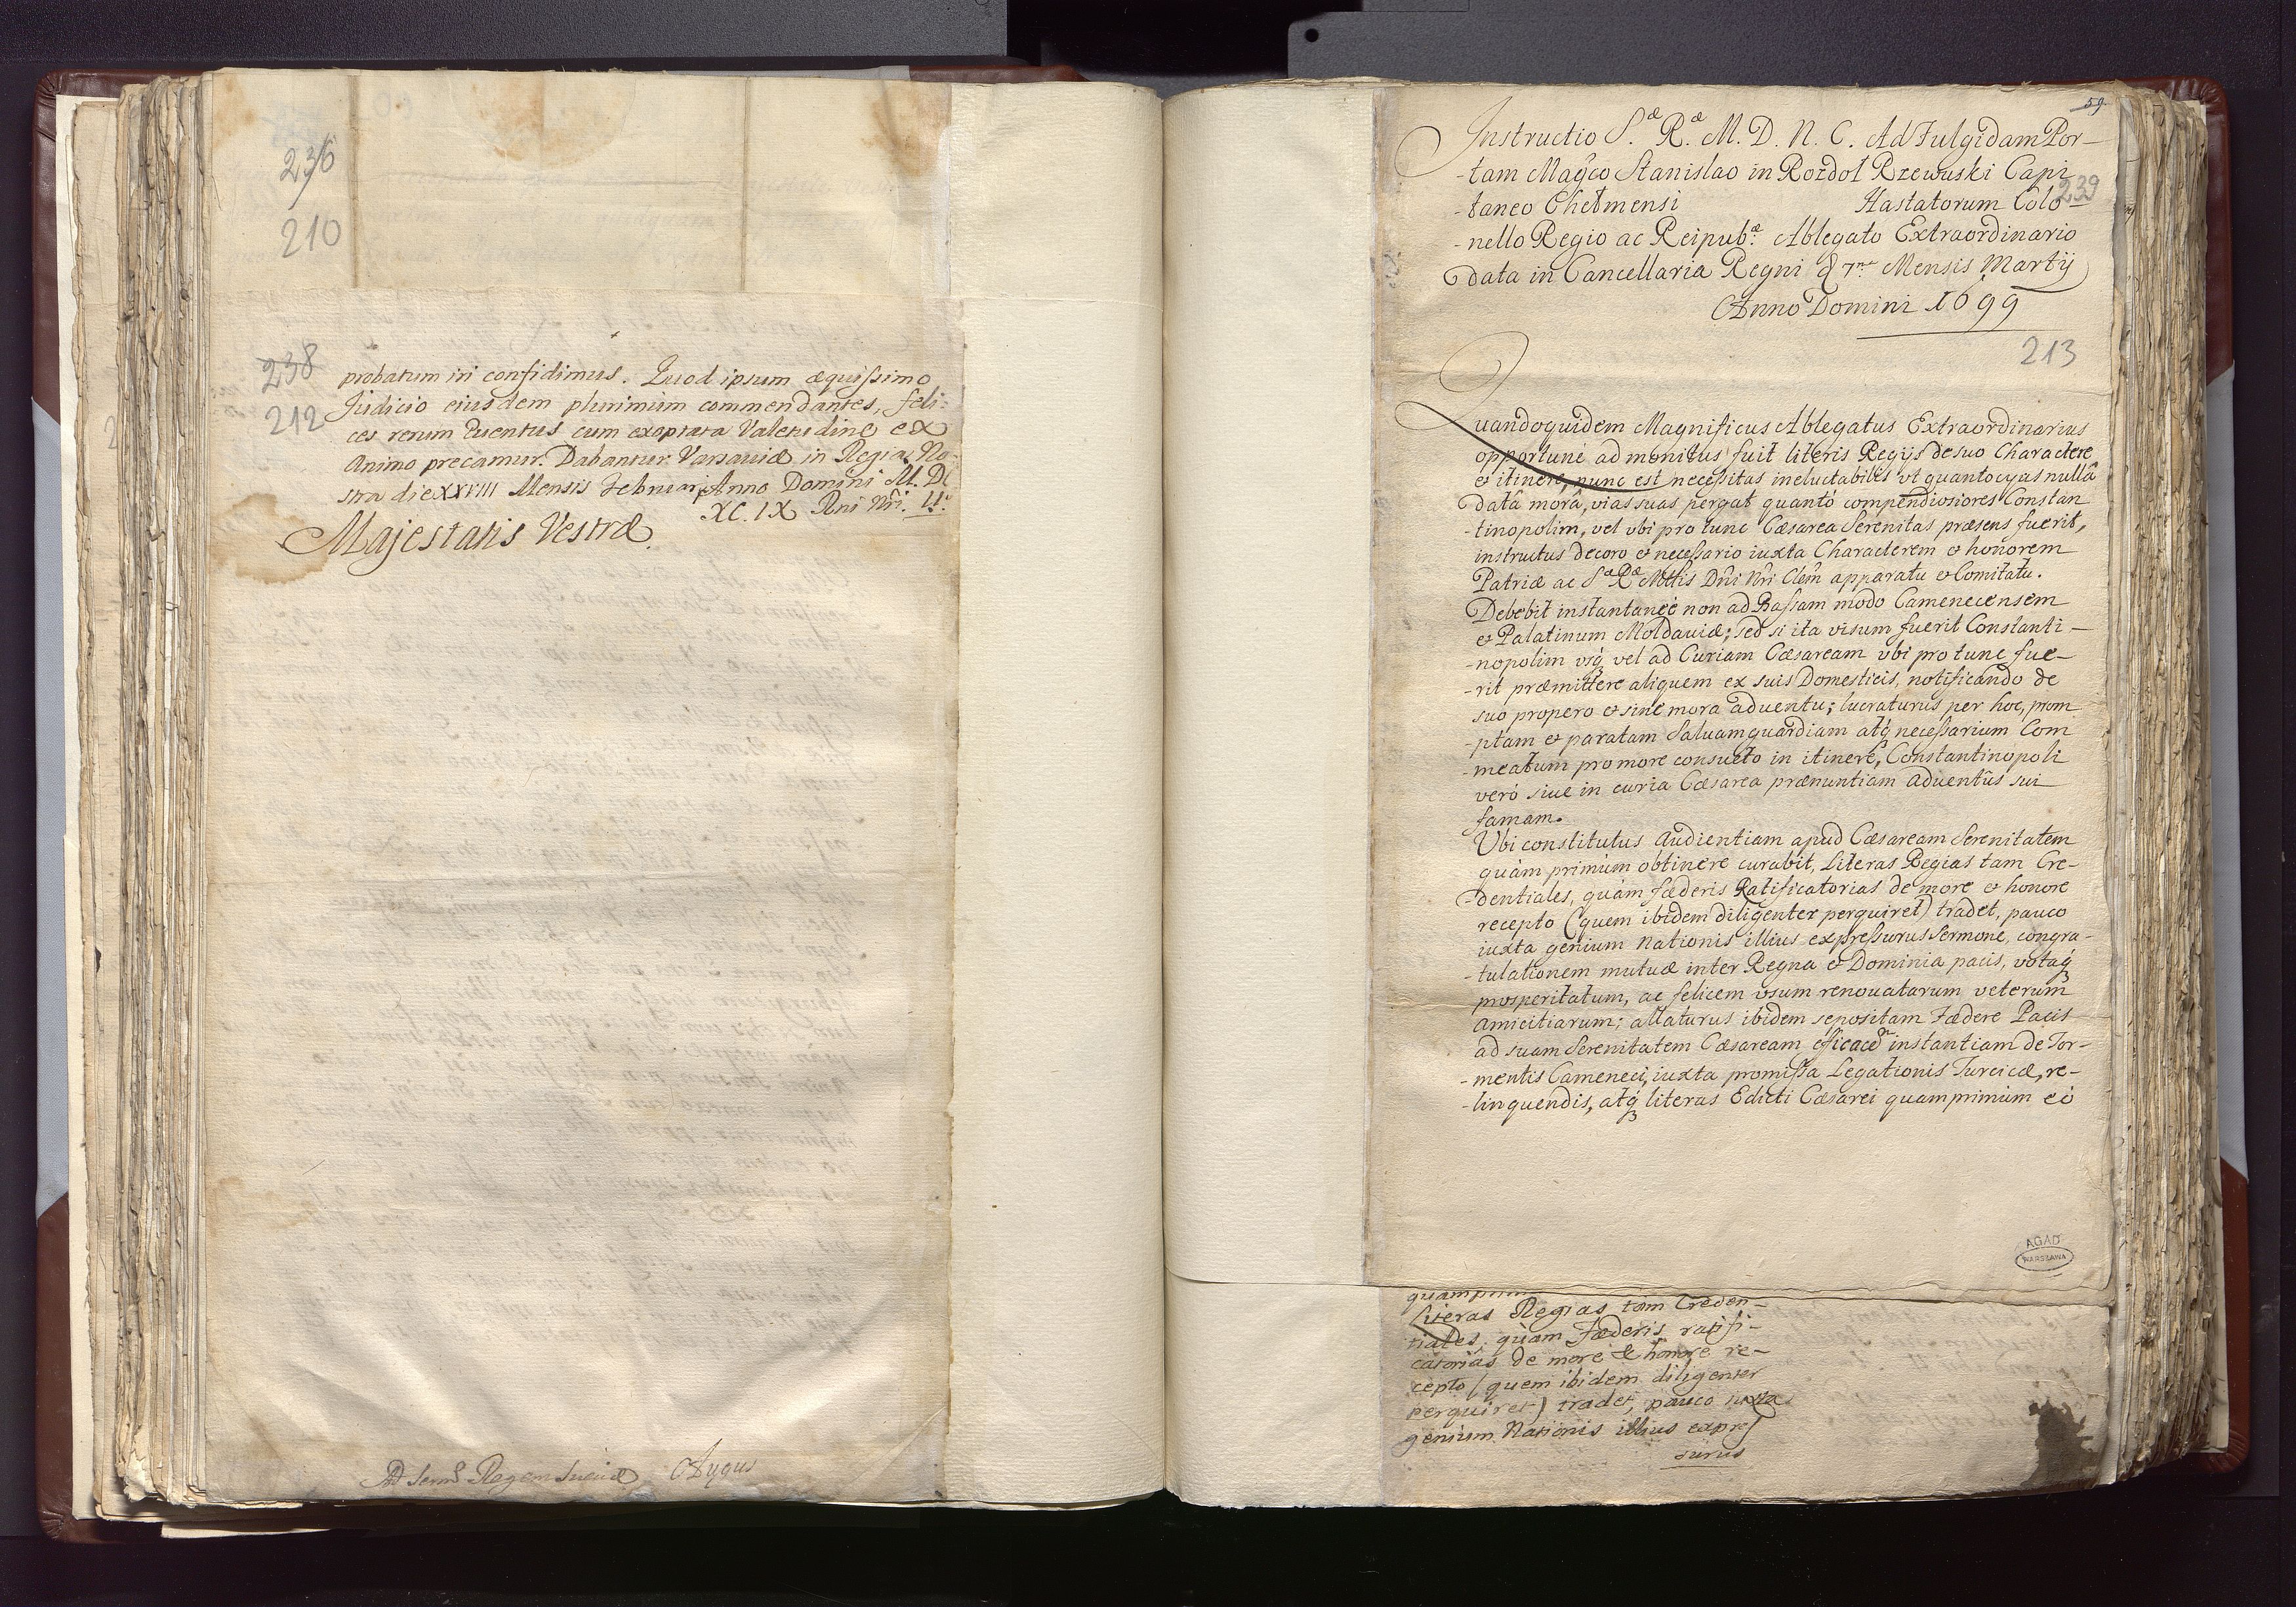 236
210
238
212
probatum iri confidimus. Quod ipsum æquissimo
Judicio eiusdem plurimùm commendantes, feli-
ces rerum Euentus cum exoptata Valetudine ex
Animo precamur. Dabantur Varsaviæ in Regia No-
stra die XXVIII Mensis Februarij Anno Domini M. DC
XC. IX Rni Nri. II.
Majestatis Vestræ
Ad Sermū Regem Sueciæ
59
Instructio S.æ R.æ M. D. N. C. Ad Fulgidam Por-
-tam Magco Stanislao in Rozdoł Rzewuski Capi
239
-taneo Chełmensi Hastatorum Colo-
-nello Regio ac Reipub.æ Ablegato Extraordinario
data in Cancellaria Regni d 7ma Mensis Martij
Anno Domini 1699
213
Quandoquidem Magnificus Ablegatus Extraordinarius
opportuné admonitus fuit literis Regijs de suo Charactere
et itinere, nunc est necessitas ineluctabilis vt quantocyus nullâ
datâ morâ, vias suas pergat quantó compendiosiores Constan
-tinopolim, vel vbi pro tunc Cæsarea Serenitas præsens fuerit,
instructus decoro et necessario iuxta Characterem et honorem
Patriæ ac Sæ Ræ Mttis Dñi Nñri Clem̃ apparatu et Comitatu.
Debebit instantanèe non ad Bassam modo Camenecensem
et Palatinum Moldauiæ; sed si ita visum fuerit Constanti-
-nopolim vsq vel ad Curiam Cæsaream vbi pro tunc fue-
-rit præmittere aliquem ex suis Domesticis, notificando de
suo propero et sine mora aduentu; lucraturus per hoc, prom
-ptam et paratam Saluamguardiam atq necessarium Com
-meatum pro more consueto in itinere, Constantinopoli
veró siue in curia Cæsarea prænuntiam aduentûs sui
famam.
Vbi constitutus Audientiam apud Cæsaream Serenitatem
quàm primùm obtinere curabit, Literas Regias tam Cre-
-dentiales, quàm fæderis Ratificatorias de more et honore
recepto (quem ibidem diligenter perquiret) tradet, pauco
iuxta genium Nationis illius expressurus Sermone, congra-
-tulationem mutuæ inter Regna et Dominia pacis, votaq
prosperitatum, ac felicem vsum renouatarum veterum
Amicitiarum; allaturus ibidem sepositam Fædere Pacis
ad suam Serenitatem Cæsaream efficacem instantiam de Tor-
-mentis Cameneci, iuxta promissa Legationis Turcicæ, re-
-linquendis, atq literas Edicti Cæsarei quamprimùm eó
AGAD
WARSZAWA
Literas Regias tam Creden-
tiales, quàm Fæderis ratifi-
catorias de more & honore re-
cepto (quem ibidem diligenter
perquiret) tradet, pauco iuxta
genium Nationis illius expres
surus